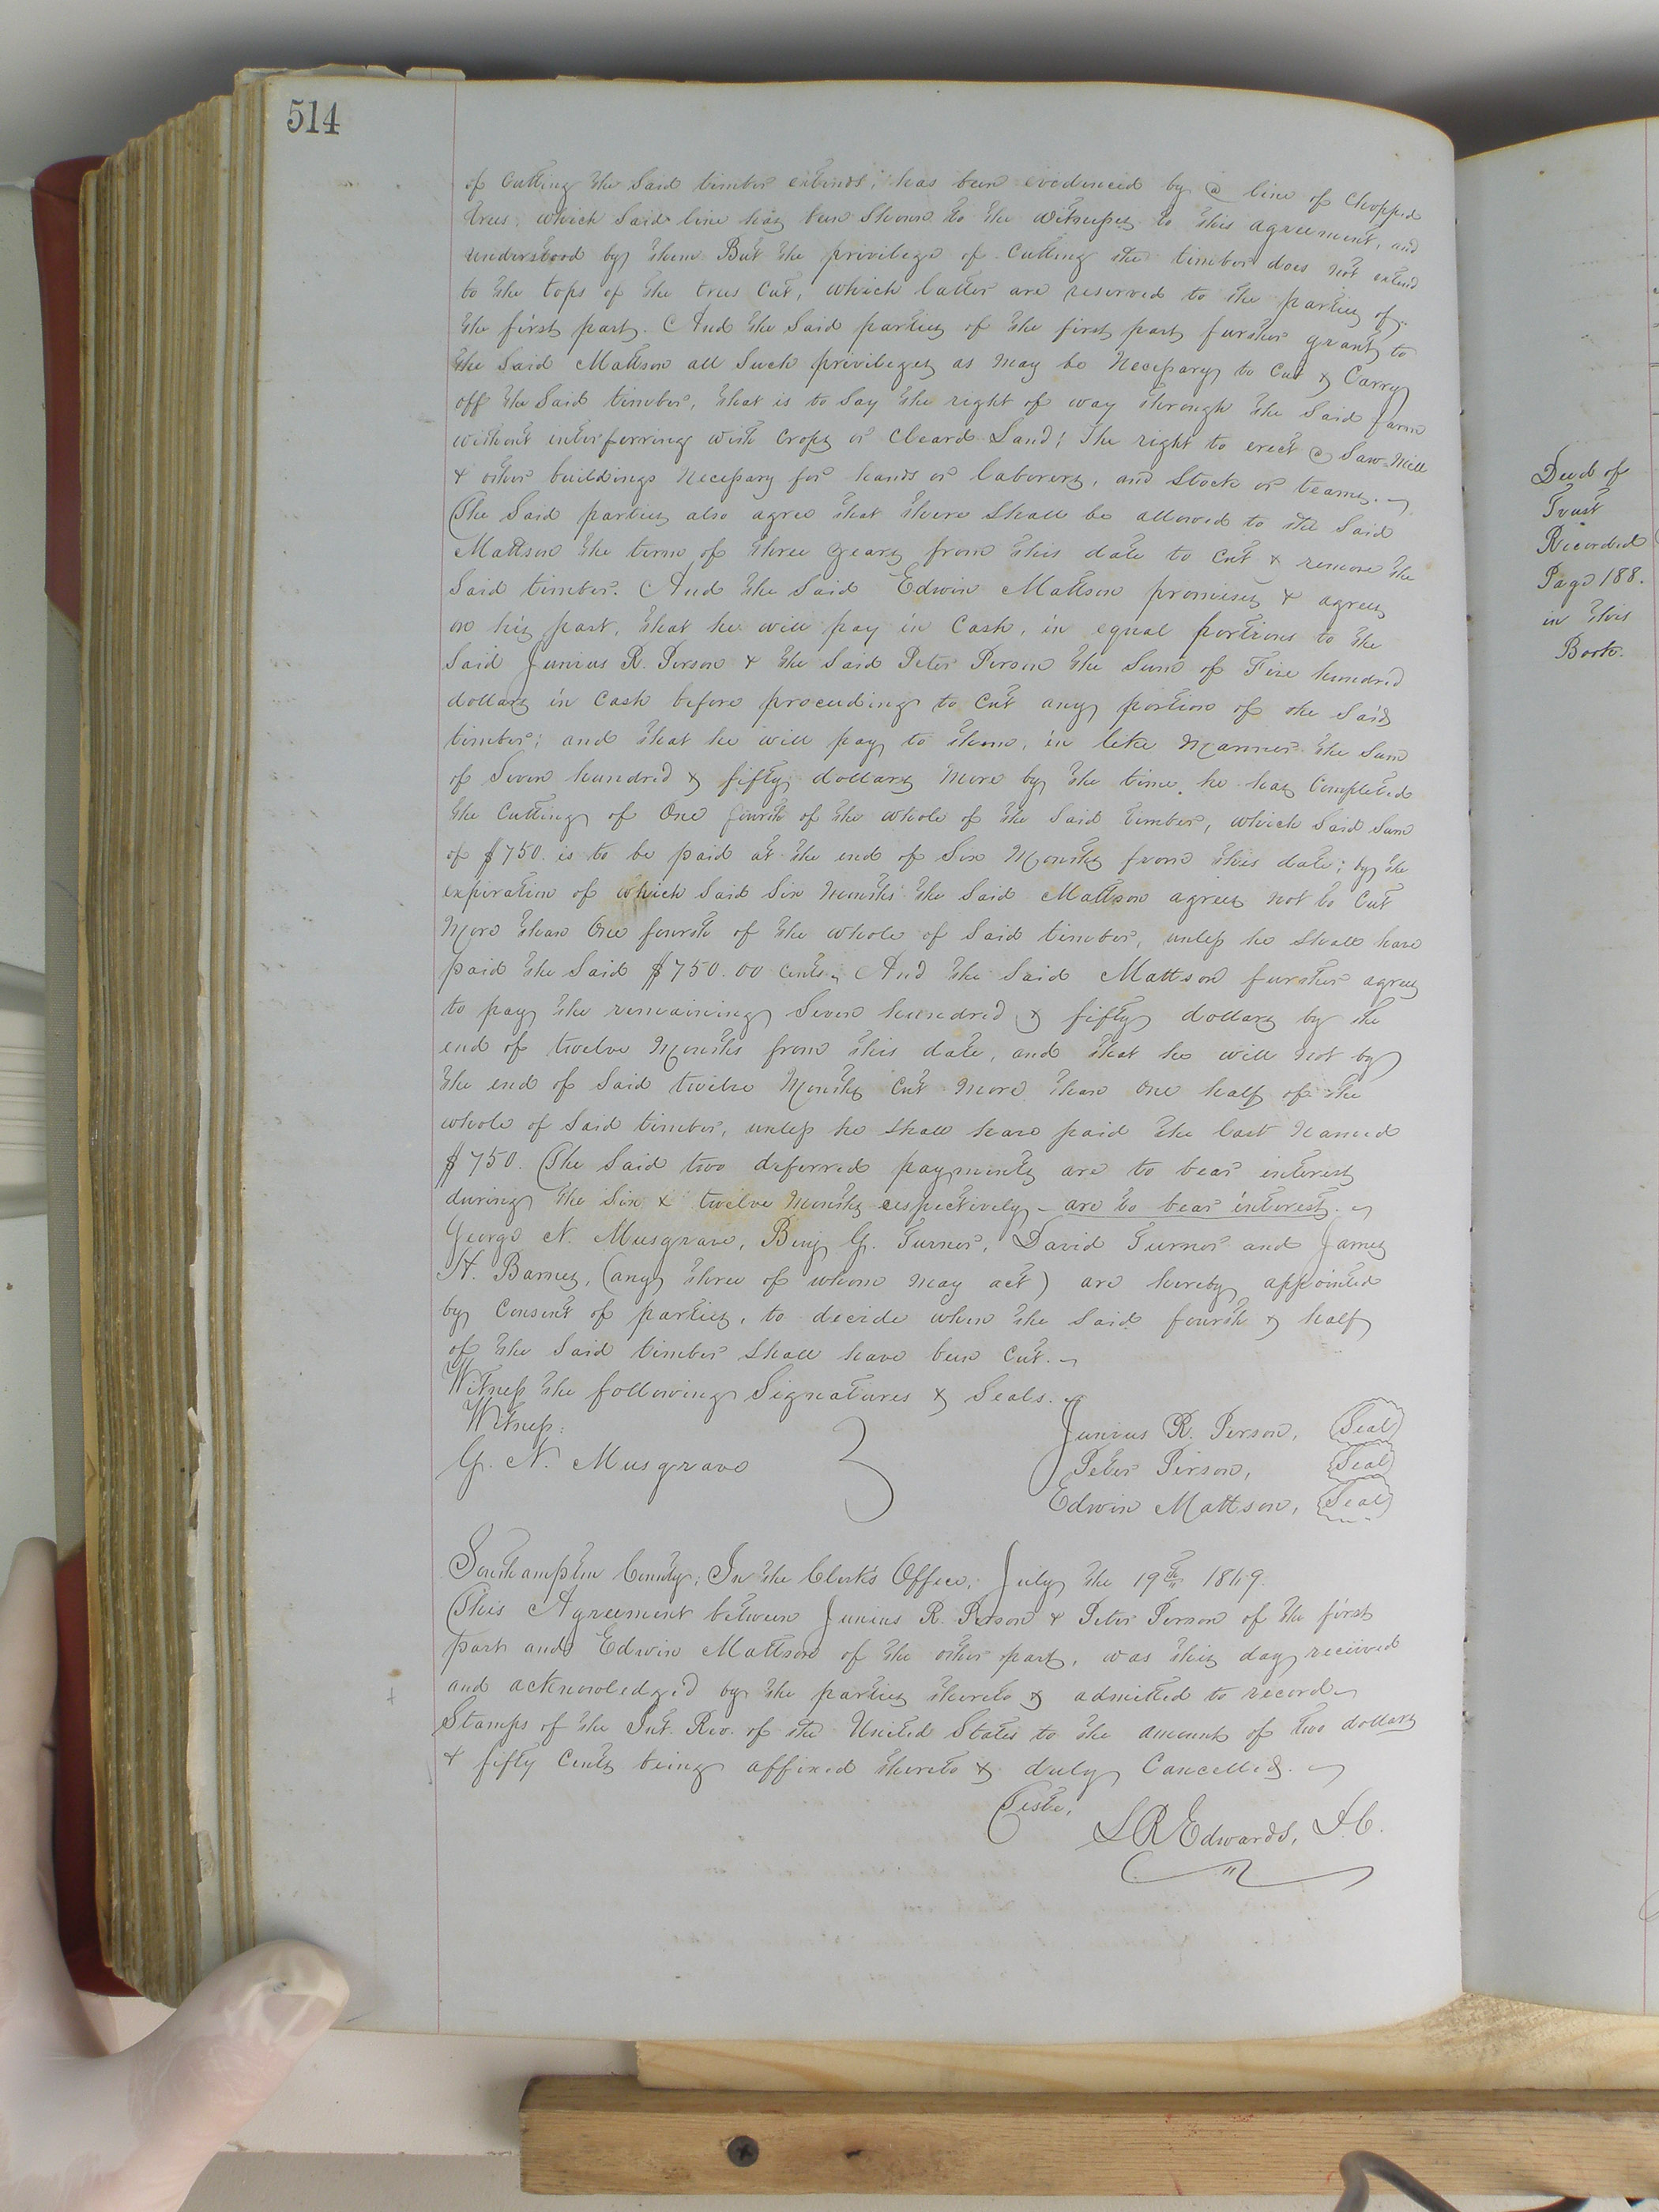 514
of Cutting the Said timber extends, has been evidenced by a line of Chopped
trees, which Said line has been Shown to the witnesses to this agreement, and
understood by them But the privilege of Cutting the timber does not extend
to the tops of the trees Cut, which latter are reserved to the parties of
the first part. And the Said parties of the first part further grant to
the Said Mattson all Such privileges as may be Necessary to Cut & Carry
off the Said timber, that is to Say the right of way through the Said farm
without interferring with Crops or Cleard Land; The right to erect a Saw-Mill
& other buildings Necessary for hands or laborers, and Stock or teams.
The Said parties also agree that there Shall be allowed to the Said
Mattson the term of three years from this date to Cut & remove the
Said timber. And the Said Edwin Mattson promises & agrees
on his part, that he will pay in Cash, in equal portions to the
Said Junius R. Person & the Said Peter Person the Sum of Five hundred
dollars in Cash before proceeding to Cut any portion of the Said
timber; and that he will pay to them, in like Manner the Sum
of Seven hundred & fifty dollars More by the time he has Completed
the Cutting of One fourth of the whole of the Said timber, which Said Sum
of $750. is to be paid at the end of Six Months from this date; by the
expiration of which Said Six Months the Said Mattson agrees not to Cut
More than One fourth of the whole of Said timber, unless he Shall have
paid the Said $750.00 cents. And the Said Mattson further agrees
to pay the remaining Seven hundred & fifty dollars by the
end of twelve Months from this date, and that he will not by
the end of Said twelve Months Cut More than One half of the
whole of Said timber, unless he Shall have paid the last Named
$750. The Said two deferred payments are to bear interest
during the Six & twelve Months respectively - are to bear interest.
George N. Musgrave, Benj. G. Turner, David Turner and James
H. Barnes, (any three of whom May act) are hereby appointed
by Consent of parties, to decide when the Said fourth & half
of the Said timber Shall have been Cut.
Witness the following Signatures & Seals.
Witness:
G. N. Musgrave
Junius R. Person, (Seal)
Peter Person, (Seal)
Edwin Mattson, (Seal)
Southampton County; In the Clerk's Office, July the 19th 1869.
This Agreement between Junius R. Person & Peter Person of the first
part and Edwin Mattson of the other part, was this day received
and acknowledged by the parties thereto & admitted to record
Stamps of the Int. Rev. of the United States to the amount of two dollars
& fifty Cents being affixed thereto & duly Cancelled.
Teste,
L R Edwards, D.C.
Deed of
Trust
Recorded
Page 188.
in this
Book.